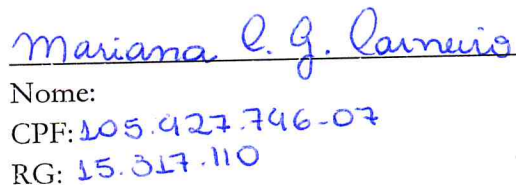 Mariana C. G. Carneiro
Nome:
CPF: 105.427.746-07
RG: 15.317.110